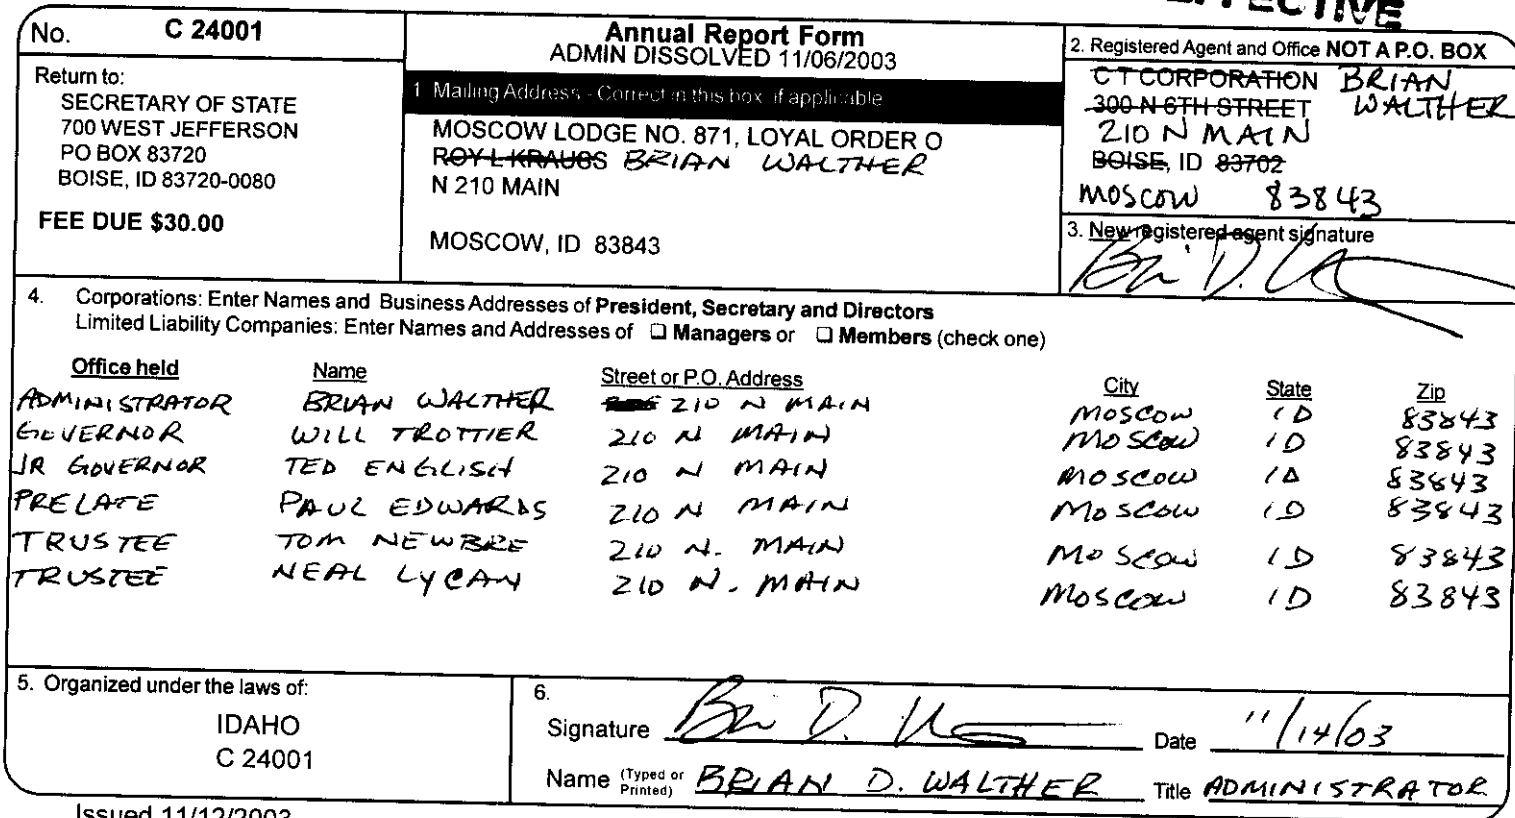 EFFECTIVE
No. C 24001
Return to:
SECRETARY OF STATE
700 WEST JEFFERSON
PO BOX 83720
BOISE, ID 83720-0080
FEE DUE $30.00
Annual Report Form
ADMIN DISSOLVED 11/06/2003
1 Mailing Address - Correct in this box if applicable
MOSCOW LODGE NO. 871, LOYAL ORDER O
ROY L KRAUGS BRIAN WALTHER
N 210 MAIN
MOSCOW, ID 83843
2. Registered Agent and Office NOT A P.O. BOX
C T CORPORATION BRIAN
300 N 6TH STREET WALTHER
210 N MAIN
BOISE, ID 83702
MOSCOW 83843
3. New registered agent signature
4. Corporations: Enter Names and Business Addresses of President, Secretary and Directors
Limited Liability Companies: Enter Names and Addresses of ☐ Managers or ☐ Members (check one)
Office held Name Street or P.O. Address City State Zip
ADMINISTRATOR BRIAN WALTHER 210 N MAIN MOSCOW ID 83843
GOVERNOR WILL TROTTIER 210 N MAIN MOSCOW ID 83843
JR GOVERNOR TED ENGLISH 210 N MAIN MOSCOW ID 83843
PRELATE PAUL EDWARDS 210 N MAIN MOSCOW ID 83843
TRUSTEE TOM NEWBRE 210 N. MAIN MOSCOW ID 83843
TRUSTEE NEAL LYCAN 210 N. MAIN MOSCOW ID 83843
5. Organized under the laws of:
IDAHO
C 24001
6.
Signature Date 11/14/03
Name (Typed or Printed) BRIAN D. WALTHER Title ADMINISTRATOR
Issued 11/12/2003